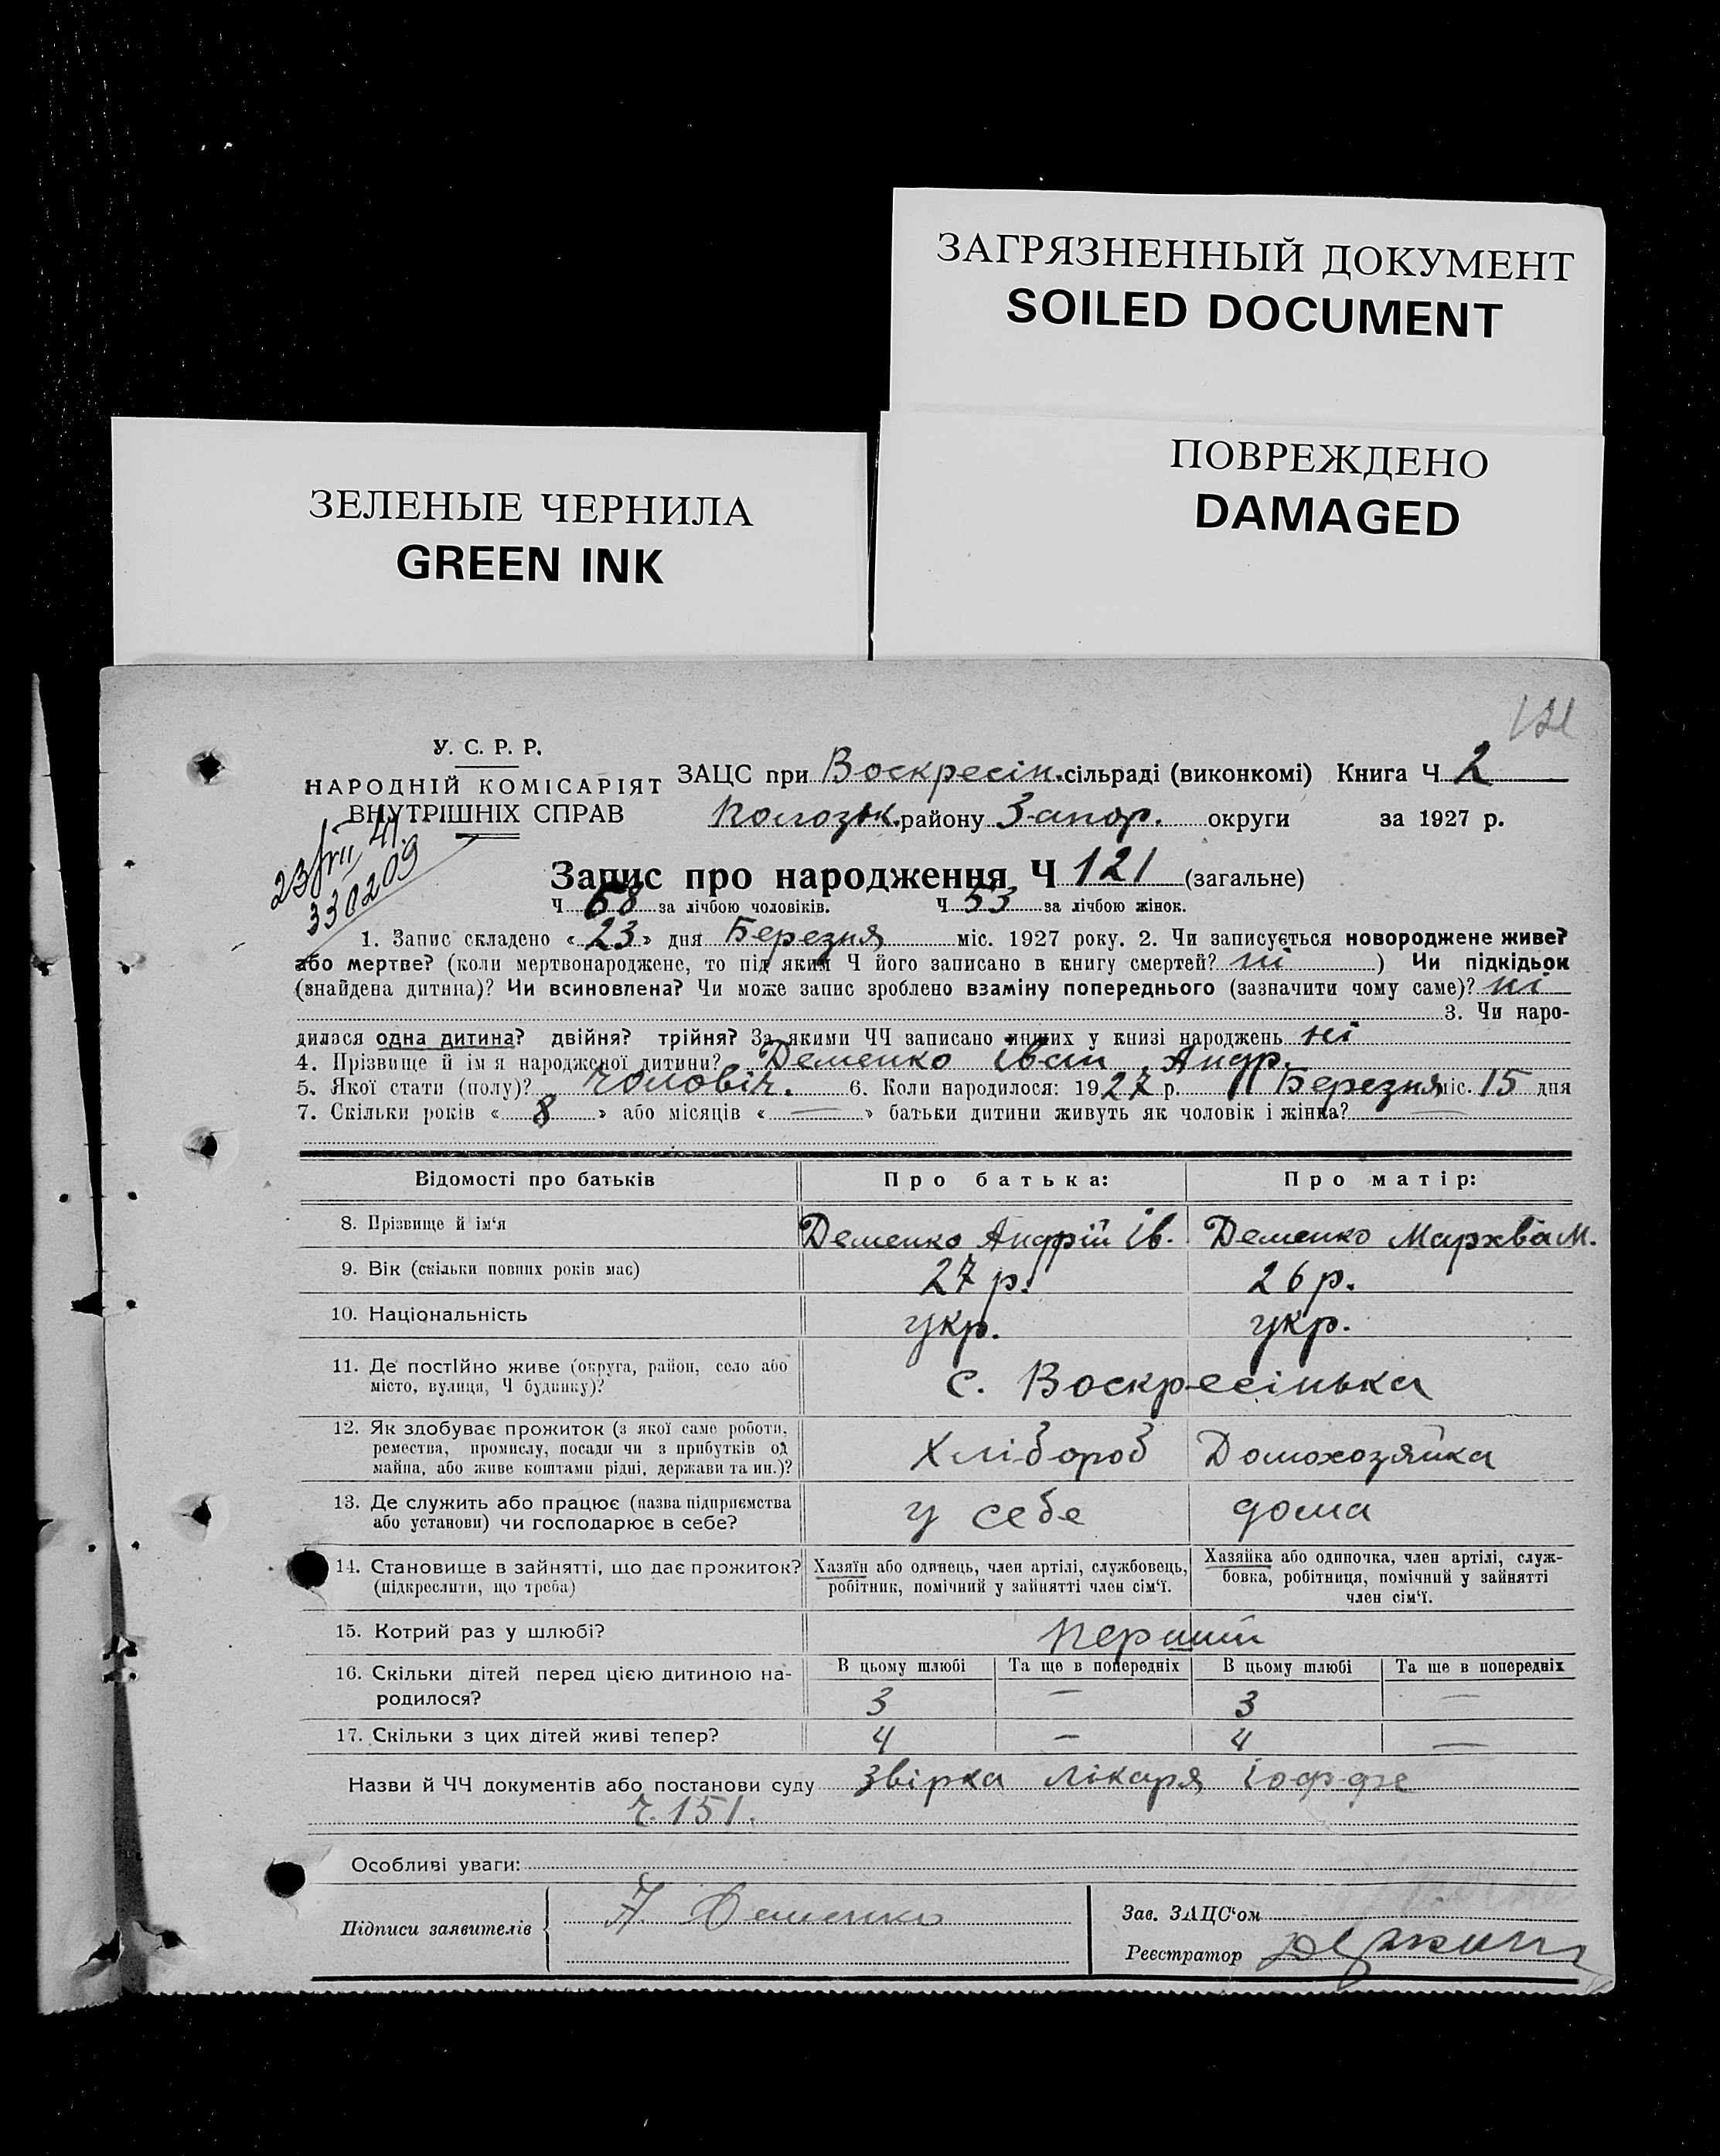 ЗАГРЯЗНЕННЫЙ ДОКУМЕНТ
SOILED DOCUMENT
ПОВРЕЖДЕНО
DAMAGED
ЗЕЛЕНЫЕ ЧЕРНИЛА
GREEN INK
121
У. С. Р. Р.
НАРОДНІЙ КОМІСАРІЯТ
ВНУТРІШНІХ СПРАВ
ЗАЦС при Воскресін. сільраді (виконкомі) Книга Ч 2
Пологівськ. району Запор. округи за 1927 р.
23 VII 41.
330209
Запис про народження Ч 121 (загальне)
Ч 68 за лічбою чоловіків. Ч 53 за лічбою жінок.
1. Запис складено « 23 » дня Березня міс. 1927 року. 2. Чи записується новороджене живе?
або мертве? (коли мертвонароджене, то під яким Ч його записано в книгу смертей? ні ) Чи підкідьок
(знайдена дитина)? Чи всиновлена? Чи може запис зроблено взаміну попереднього (зазначити чому саме)? ні
3. Чи наро-
дилася одна дитина? двійня? трійня? За якими ЧЧ записано инших у книзі народжень ні
4. Прізвище й ім я народженої дитини? Деменко Іван Андр.
5. Якої стати (полу)? чоловіч. 6. Коли народилося: 1927 р. Березня міс. 15 дня
7. Скільки років « 8 » або місяців « — » батьки дитини живуть як чоловік і жінка? —
Відомості про батьків Про батька: Про матір:
8. Прізвище й ім'я Деменко Андрій Ів. Деменко Мархва М.
9. Вік (скільки повних років має) 27 р. 26 р.
10. Національність укр. укр.
11. Де постійно живе (округа, район, село або
місто, вулиця, Ч будинку)? с. Воскресінька
12. Як здобуває прожиток (з якої саме роботи,
ремества, промислу, посади чи з прибутків од
майна, або живе коштами рідні, держави та ин.)? Хлібороб Домохозяйка
13. Де служить або працює (назва підприємства
або установи) чи господарює в себе? у себе дома
14. Становище в зайнятті, що дає прожиток?
(підкреслити, що треба)
Хазяїн або одинець, член артілі, службовець,
робітник, помічний у зайнятті член сім'ї.
Хазяйка або одиночка, член артілі, служ-
бовка, робітниця, помічний у зайнятті
член сім'ї.
15. Котрий раз у шлюбі? перший
16. Скільки дітей перед цією дитиною на-
родилося?
В цьому шлюбі Та ще в попередніх В цьому шлюбі Та ще в попередніх
3 — 3 —
17. Скільки з цих дітей живі тепер? 4 — 4 —
Назви й ЧЧ документів або постанови суду звірка лікаря Іоффе
ч. 151.
Особливі уваги:
Підписи заявителів А Деменко
Зав. ЗАЦС'ом
Реєстратор